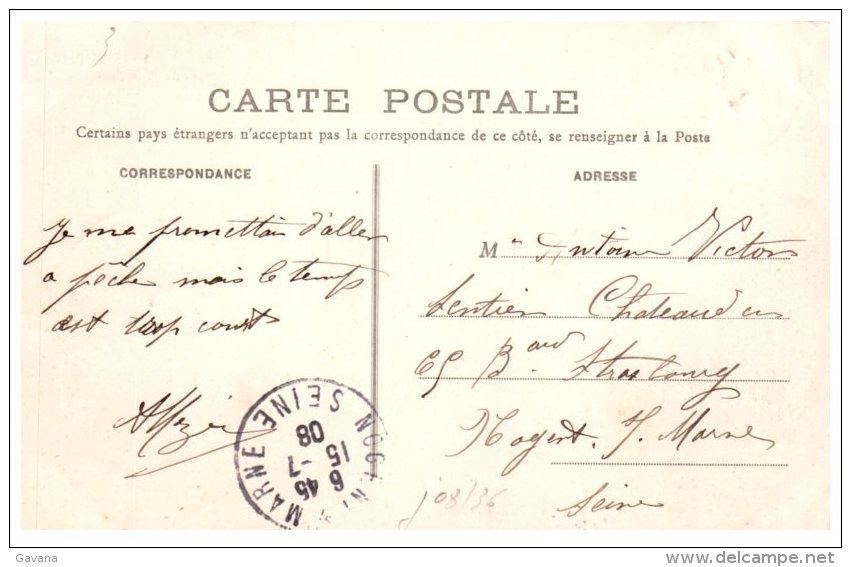 3
CARTE POSTALE
Certains pays étrangers n'acceptant pas la correspondance de ce côté, se renseigner à la Poste
CORRESPONDANCE
Je me promettais d'aller
a pêche mais le temps
est trop court
ADRESSE
M Antoine Victor
Sentier Chateaudun
65 Bard Strasbourg
Nogent s. Marne
Seine
NOGENT S MARNE SEINE
6 45
15 -7
08
j 08/36
Gavana
www.delcampe.net